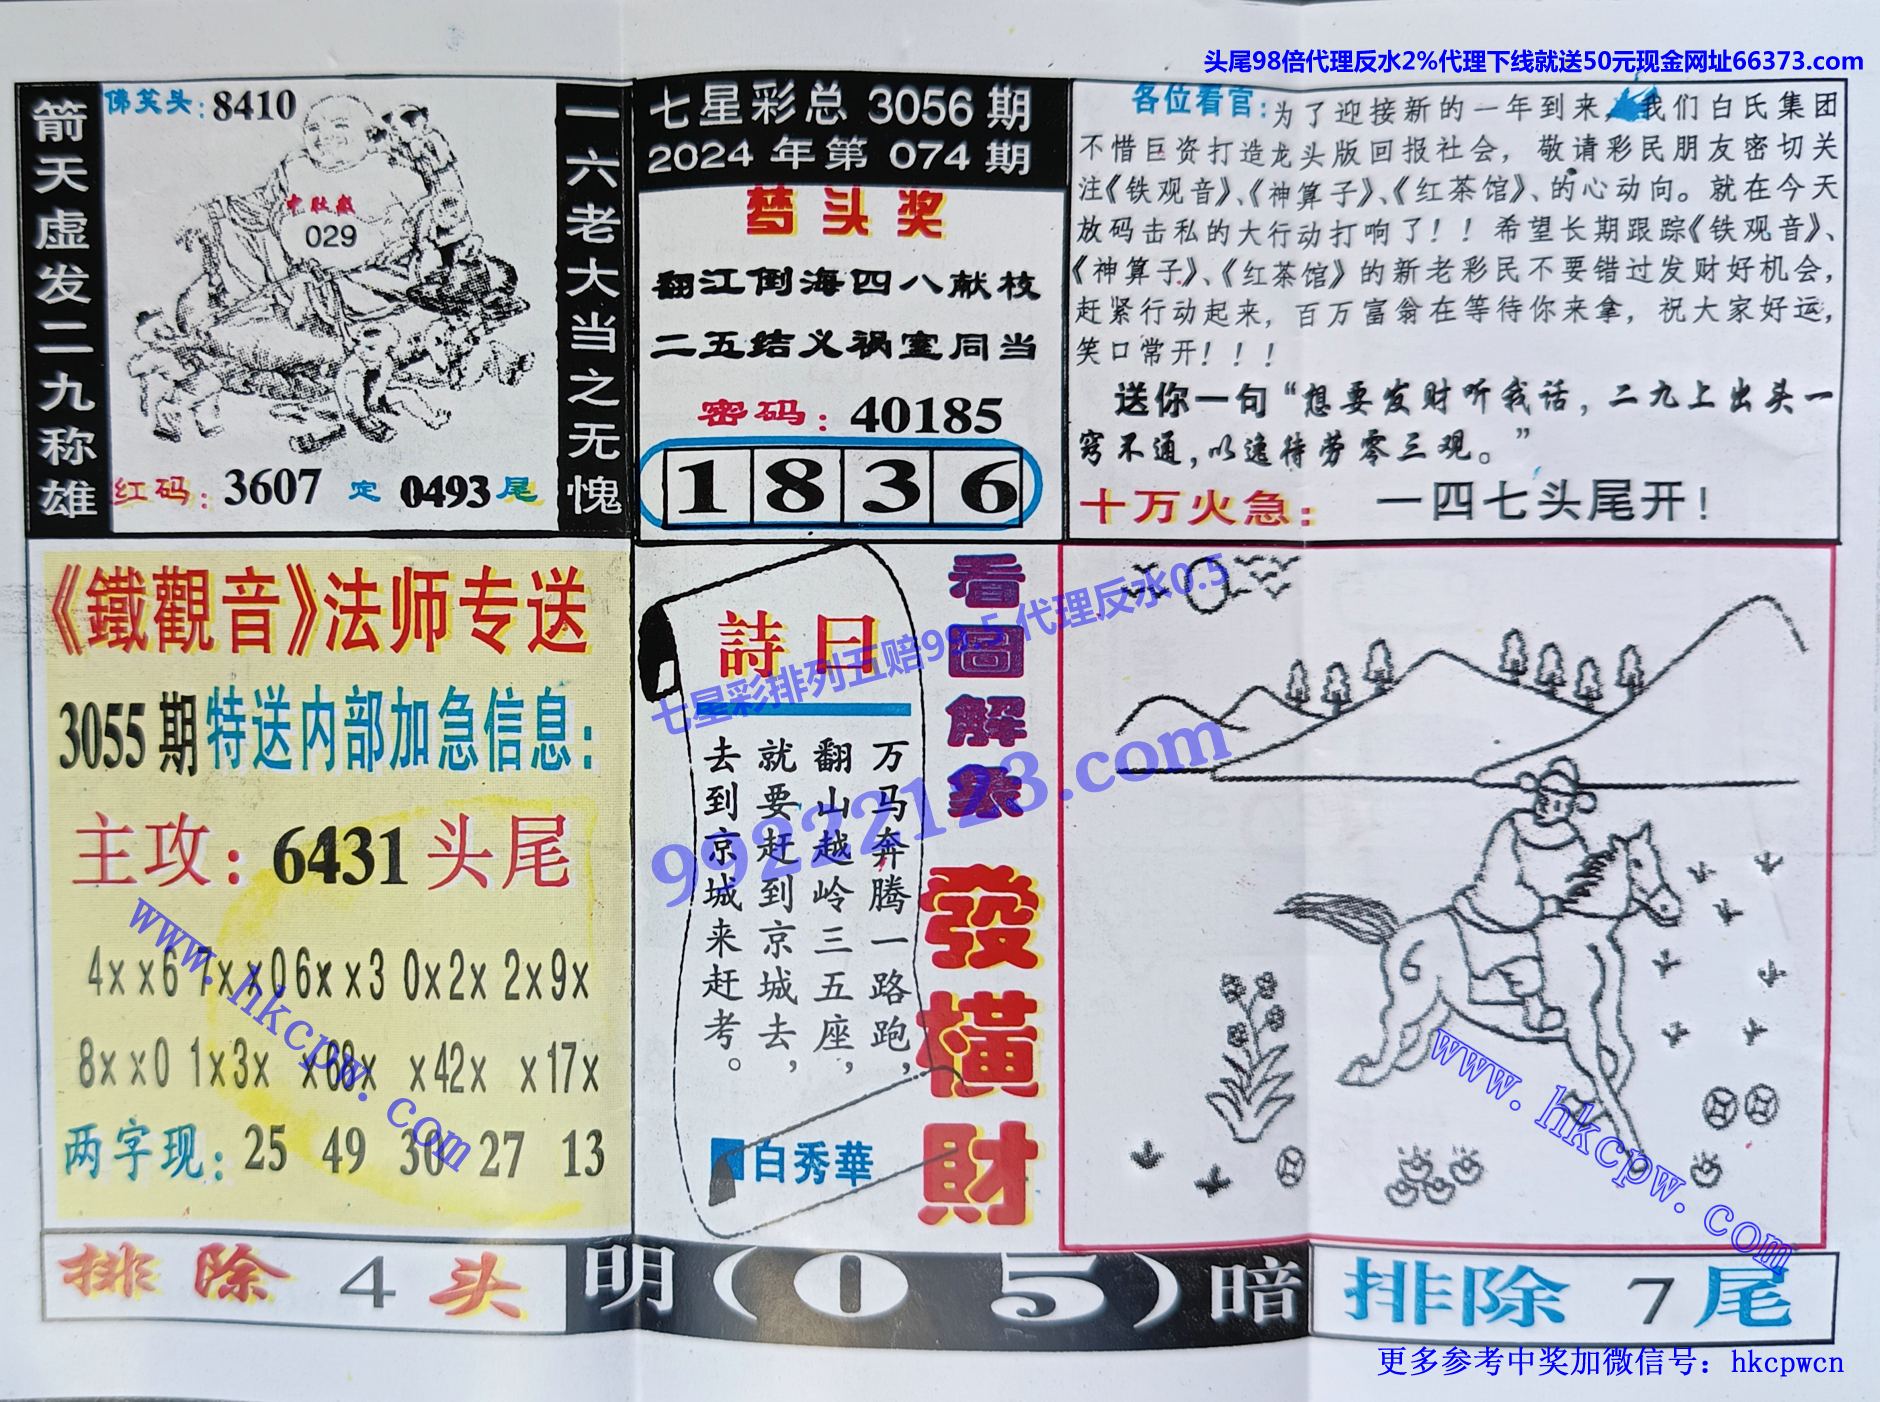 头尾98倍代理反水2%代理下线就送50元现金网址66373.com
箭天虚发二九称雄
佛笑头：8410
中肚藏
029
红码：3607 定 0493尾
一六老大当之无愧
七星彩总 3056 期
2024 年第 074 期
梦头奖
翻江倒海四八献枝
二五结义祸室同当
密码：40185
1 8 3 6
各位看官：为了迎接新的一年到来，我们白氏集团
不惜巨资打造龙头版回报社会，敬请彩民朋友密切关
注《铁观音》、《神算子》、《红茶馆》、的心动向。就在今天
放码击私的大行动打响了！！希望长期跟踪《铁观音》、
《神算子》、《红茶馆》的新老彩民不要错过发财好机会，
赶紧行动起来，百万富翁在等待你来拿，祝大家好运，
笑口常开！！！
送你一句“想要发财听我话，二九上出头一
窍不通，以逸待劳零三观。”
十万火急：一四七头尾开！
《鐵觀音》法师专送
3055期特送内部加急信息：
主攻：6431头尾
4××6 7××0 6××3 0×2× 2×9×
8××0 1×3× ×68× ×42× ×17×
两字现：25 49 30 27 13
詩曰
万马奔腾一路跑，
翻山越岭三五座，
就要赶到京城去，
去到京城来赶考。
白秀華
看圖解象
發橫財
七星彩排列五赔99.5代理反水0.5
99222123.com
www.hkcpw.com
www.hkcpw.com
排除 4 头
明（0 5）暗
排除 7 尾
更多参考中奖加微信号：hkcpwcn